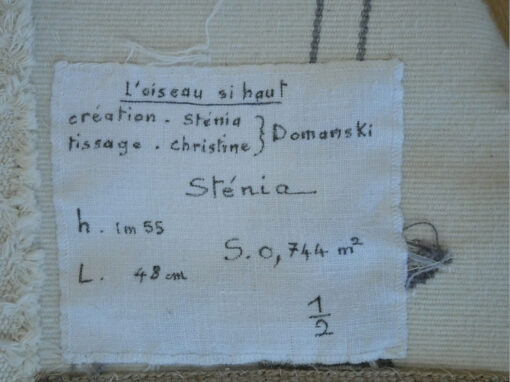 L'oiseau si haut
création. Sténia
tissage. christine } Domanski
Sténia
h. 1m55
S. 0,744 m²
L. 48 cm
1/2